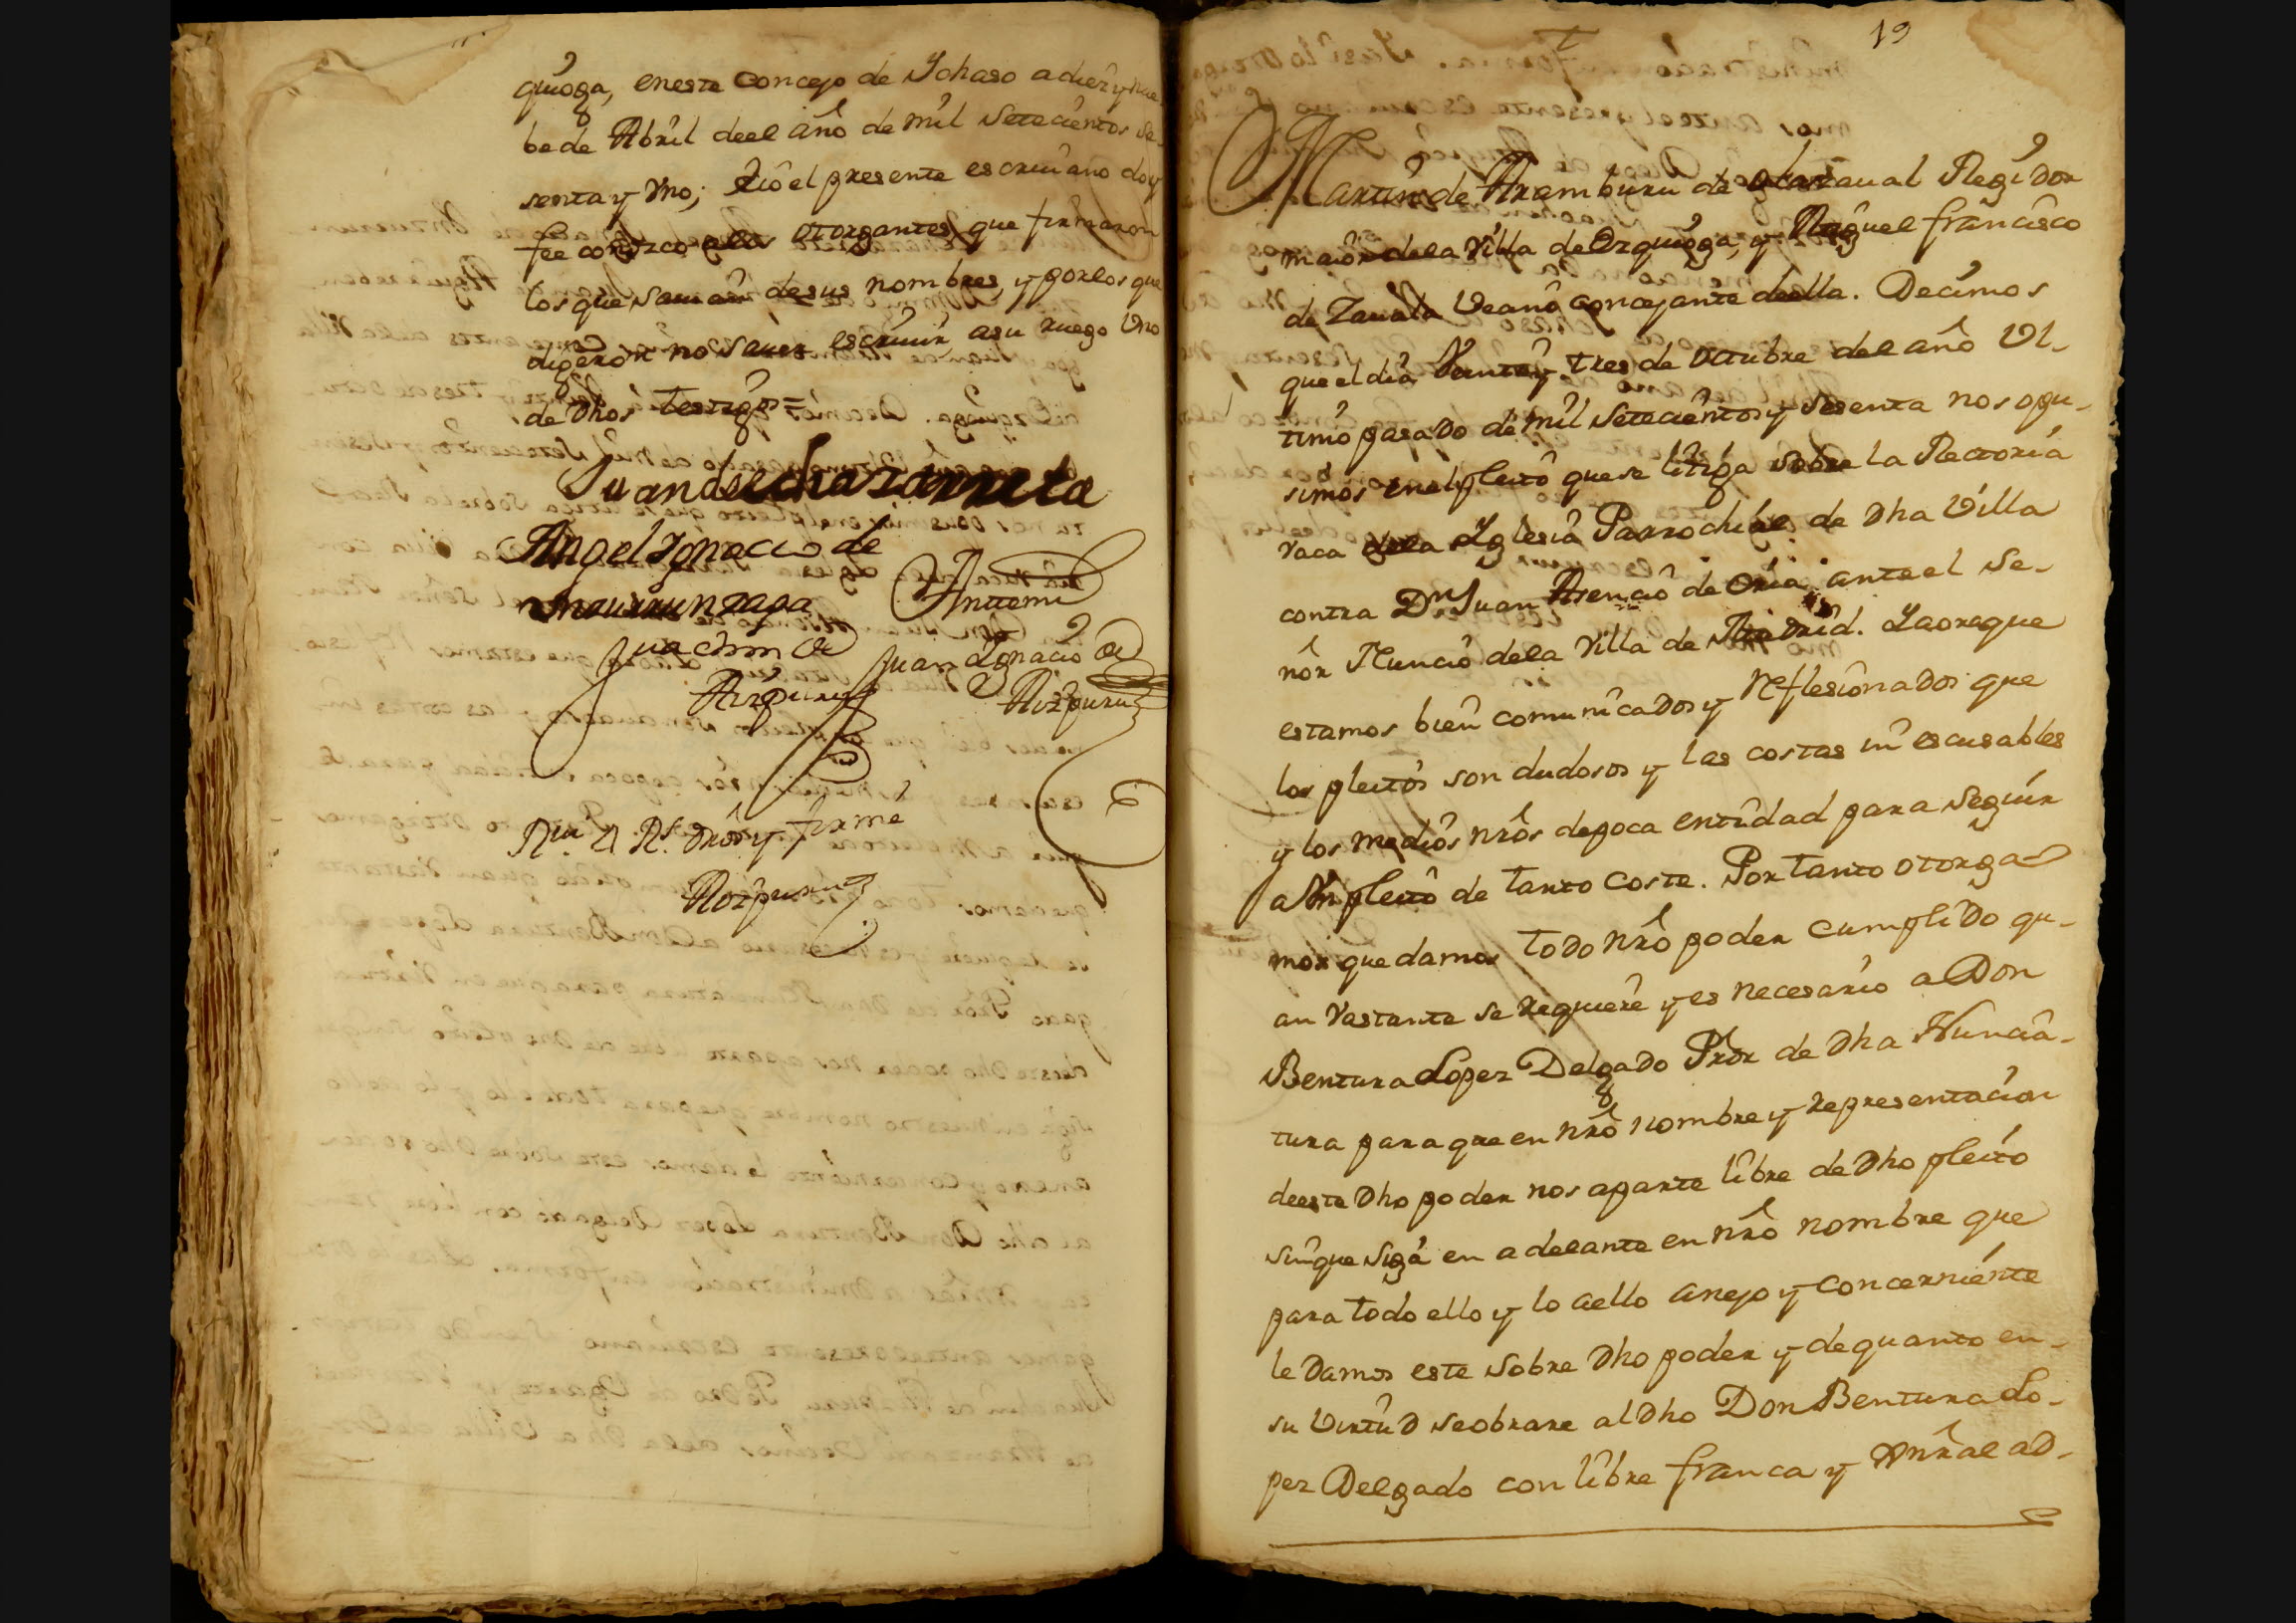 quioga, eneste concejo de Ychaso adiez y nue-
be de Abril deel año de mil Setecientos se-
senta y Vno; Eio el presente escriuano doy
fee conozco alos otorgantes, que firmaron
los que Sauian desus nombres, y por los que
digeron no Sauer escriuir, asu ruego Vno
de Dhos testigos =
Juan de echazarreta
Angel Ygnacio de
murrunzaga
Juachin de
Aizpuru
Antemi
Juan Ygnacio de
Aizpuru
y firmé
Aizpuru
19
Martin de Aramburu de Olarzaual Regidor
maior dela Villa de Ezquioga, y Miguel francisco
de Zauala Veano concejante deella. Decimos
que el dia Veinte y tres de octubre del año Vl-
timo pasado de mil Setecientos y sesenta nos opu-
simos enel pleito que se litiga sobre la Rectoria
vaca dela Yglesia Parrochial de Dha Villa
contra Dn Juan Asencio de Oria ante el Se-
ñor Nuncio dela Villa de Madrid. Yaora que
estamos bien comunicados y Reflesionados que
los pleitos son dudosos y las costas in escusables
y los medios nros depoca entidad para Seguir
a Vn pleito de tanto coste. Por tanto otorga-
mos que damos todo nro poder cumplido qu-
an Vastante se requiere y es necesario a Don
Bentura Lopez Delgado Pror de Dha Nuncia-
tura para que en nro nombre y representacion
deeste Dho poder nos aparte libre de Dho pleito
sinque Siga en adelante en nro nombre que
para todo ello y lo aello anejo y concerniente
le Damos este sobre Dho poder y de quanto en-
su Virtud se obrare al Dho Don Bentura Lo-
pez Delgado con libre franca y gnral ad-